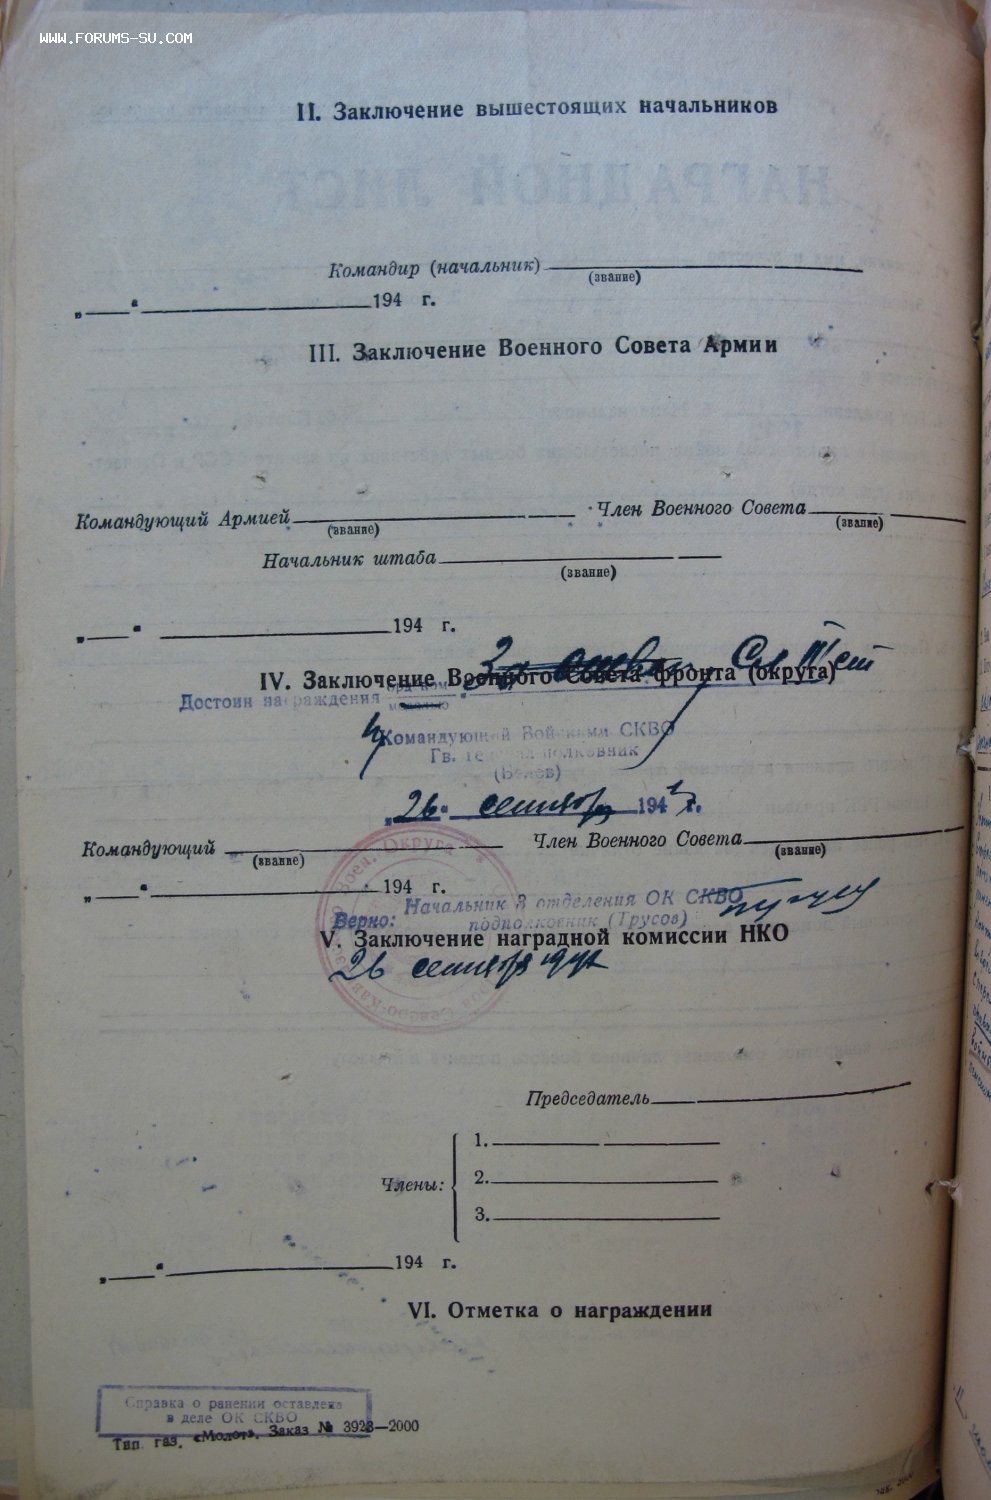 WWW.FORUMS-SU.COM
II. Заключение вышестоящих начальников
Командир (начальник)
(звание)
„ “ 194 г.
III. Заключение Военного Совета Армии
Командующий Армией Член Военного Совета
(звание) (звание)
Начальник штаба
(звание)
„ “ 194 г.
IV. Заключение Военного Совета фронта (округа)
Достоин награждения орденом
медалью
Командующий Войсками СКВО
Гв. генерал-полковник
(Белов)
„26“ сентября 194 г.
Командующий Член Военного Совета
(звание) (звание)
„ “ 194 г.
Верно: Начальник 3 отделения ОК СКВО
подполковник (Трусов)
V. Заключение наградной комиссии НКО
26 сентября
Председатель
Члены:
1.
2.
3.
„ “ 194 г.
VI. Отметка о награждении
Справка о ранении оставлена
в деле ОК СКВО
Тип. газ. «Молот». Заказ № 3928—2000